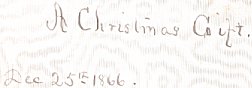 A Christmas Gift.
Dec 25th 1866.